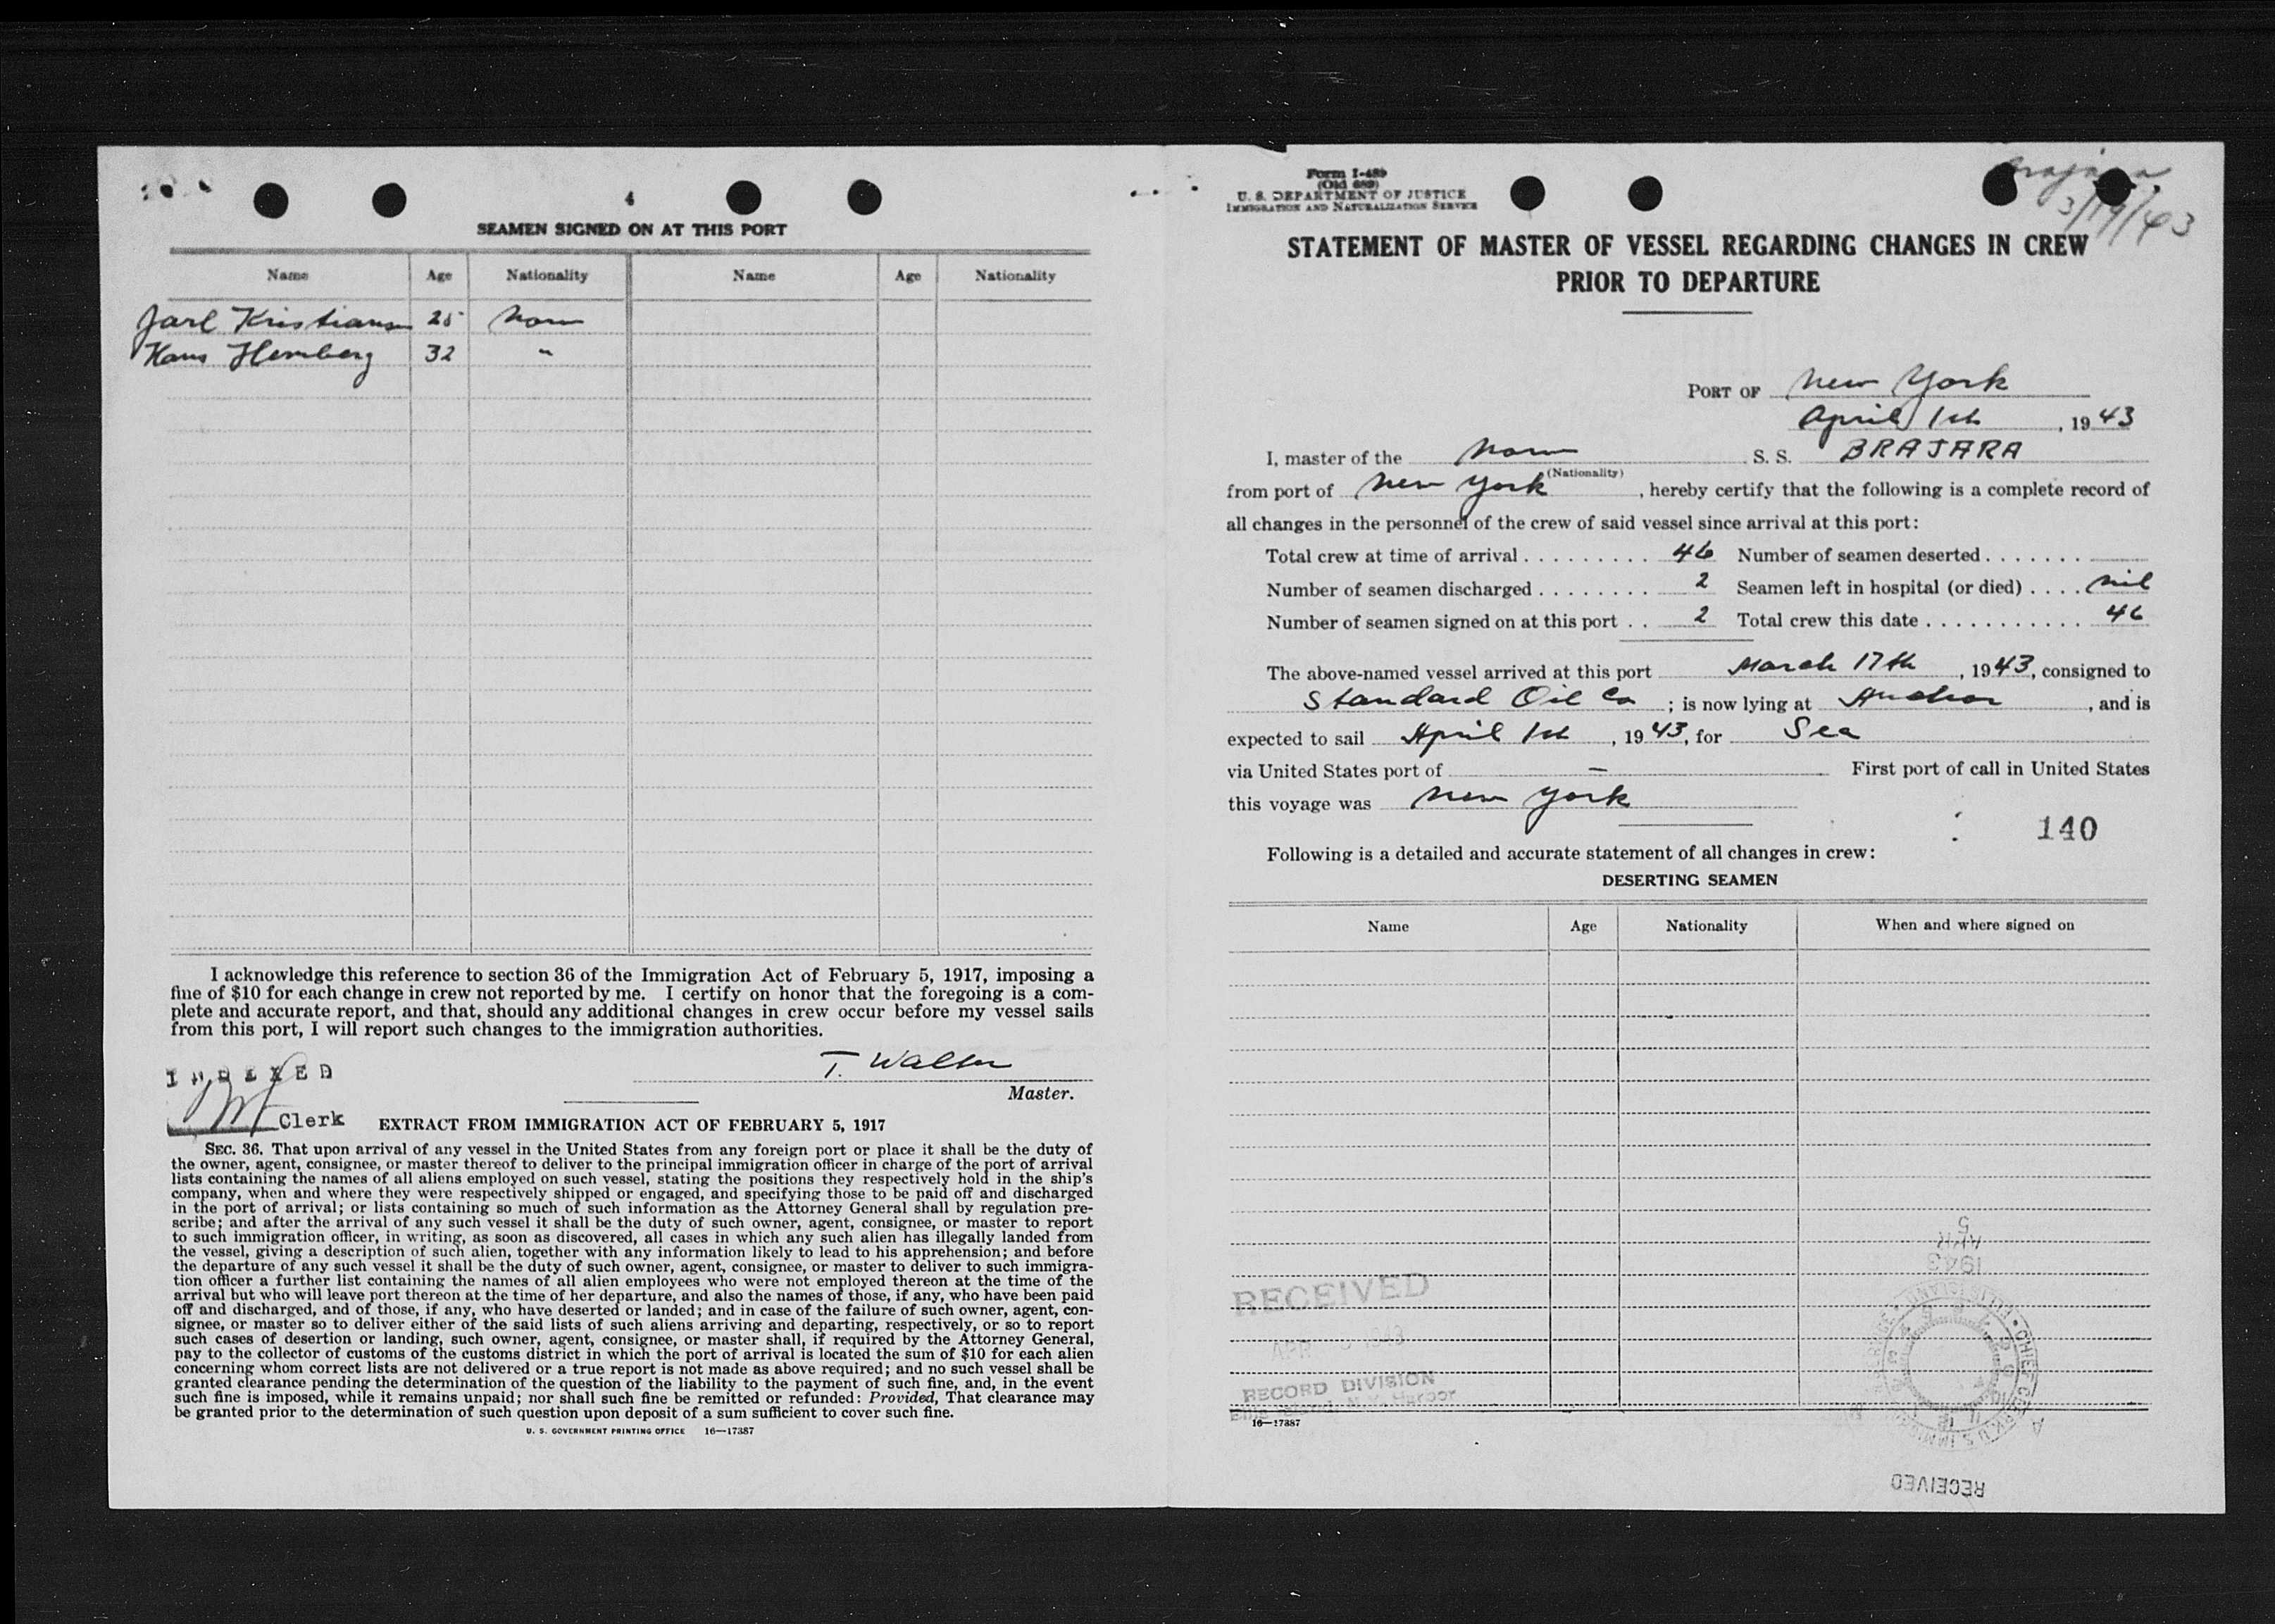 4
SEAMEN SIGNED ON AT THIS PORT
Name Age Nationality Name Age Nationality
Jarl Kristiansen 25 Norw
Hans Hernberg 32 "
I acknowledge this reference to section 36 of the Immigration Act of February 5, 1917, imposing a
fine of $10 for each change in crew not reported by me. I certify on honor that the foregoing is a com-
plete and accurate report, and that, should any additional changes in crew occur before my vessel sails
from this port, I will report such changes to the immigration authorities.
T. Walter
Master.
INDEXED
Clerk
EXTRACT FROM IMMIGRATION ACT OF FEBRUARY 5, 1917
SEC. 36. That upon arrival of any vessel in the United States from any foreign port or place it shall be the duty of
the owner, agent, consignee, or master thereof to deliver to the principal immigration officer in charge of the port of arrival
lists containing the names of all aliens employed on such vessel, stating the positions they respectively hold in the ship's
company, when and where they were respectively shipped or engaged, and specifying those to be paid off and discharged
in the port of arrival; or lists containing so much of such information as the Attorney General shall by regulation pre-
scribe; and after the arrival of any such vessel it shall be the duty of such owner, agent, consignee, or master to report
to such immigration officer, in writing, as soon as discovered, all cases in which any such alien has illegally landed from
the vessel, giving a description of such alien, together with any information likely to lead to his apprehension; and before
the departure of any such vessel it shall be the duty of such owner, agent, consignee, or master to deliver to such immigra-
tion officer a further list containing the names of all alien employees who were not employed thereon at the time of the
arrival but who will leave port thereon at the time of her departure, and also the names of those, if any, who have been paid
off and discharged, and of those, if any, who have deserted or landed; and in case of the failure of such owner, agent, con-
signee, or master so to deliver either of the said lists of such aliens arriving and departing, respectively, or so to report
such cases of desertion or landing, such owner, agent, consignee, or master shall, if required by the Attorney General,
pay to the collector of customs of the customs district in which the port of arrival is located the sum of $10 for each alien
concerning whom correct lists are not delivered or a true report is not made as above required; and no such vessel shall be
granted clearance pending the determination of the question of the liability to the payment of such fine, and, in the event
such fine is imposed, while it remains unpaid; nor shall such fine be remitted or refunded: Provided, That clearance may
be granted prior to the determination of such question upon deposit of a sum sufficient to cover such fine.
U. S. GOVERNMENT PRINTING OFFICE 16—17387
Form I-489
(Old 689)
U. S. DEPARTMENT OF JUSTICE
IMMIGRATION AND NATURALIZATION SERVICE
Brajara
3/19/43
STATEMENT OF MASTER OF VESSEL REGARDING CHANGES IN CREW
PRIOR TO DEPARTURE
PORT OF New York
April 1st, 1943
I, master of the Norw S. S. BRAJARA
(Nationality)
from port of New York, hereby certify that the following is a complete record of
all changes in the personnel of the crew of said vessel since arrival at this port:
Total crew at time of arrival . . . . . . . . . . 46 Number of seamen deserted . . . . . . .
Number of seamen discharged . . . . . . . . 2 Seamen left in hospital (or died) . . . . nil
Number of seamen signed on at this port . . 2 Total crew this date . . . . . . . . . . . . 46
The above-named vessel arrived at this port March 17th, 1943, consigned to
Standard Oil Co; is now lying at Anchor, and is
expected to sail April 1st, 1943, for Sea
via United States port of — First port of call in United States
this voyage was New York
140
Following is a detailed and accurate statement of all changes in crew:
DESERTING SEAMEN
Name Age Nationality When and where signed on
5
APR
1943
RECEIVED
APR 1943
RECORD DIVISION
Ellis Island, N.Y. Harbor
16—17387
RECEIVED